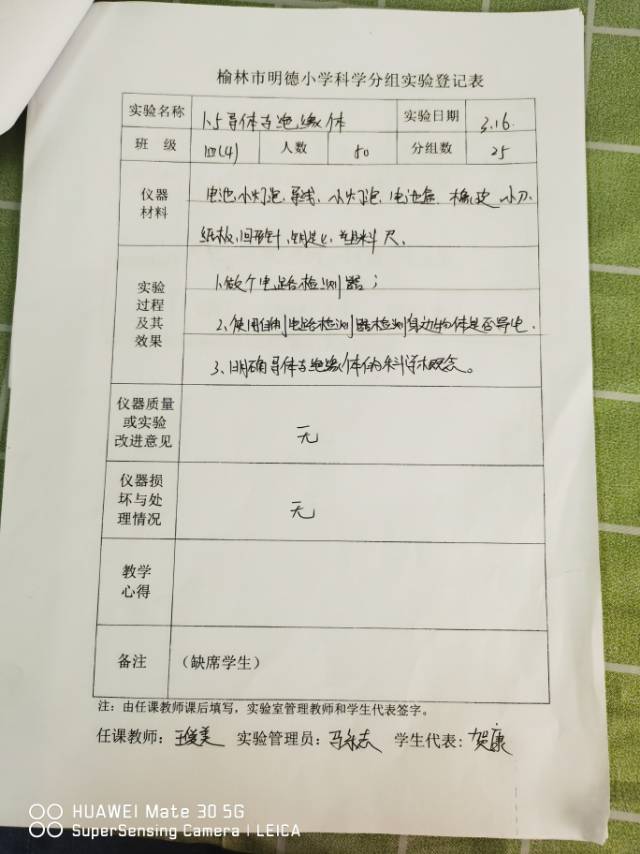 榆林市明德小学科学分组实验登记表
实验名称 1.5导体与绝缘体 实验日期 3.16.
班 级 四(4) 人数 50 分组数 25
仪器材料 电池、小灯泡、导线、小灯泡、电池盒、橡皮、小刀、
纸板、回形针、钥匙、塑料尺.
实验过程及其效果 1、做个电路检测器;
2、使用自制电路检测器检测身边物体是否导电.
3、明确导体与绝缘体的科学概念。
仪器质量或实验改进意见 无
仪器损坏与处理情况 无
教学心得
备注 (缺席学生)
注:由任课教师课后填写,实验室管理教师和学生代表签字。
任课教师: 实验管理员: 学生代表:贺康
HUAWEI Mate 30 5G
SuperSensing Camera | LEICA